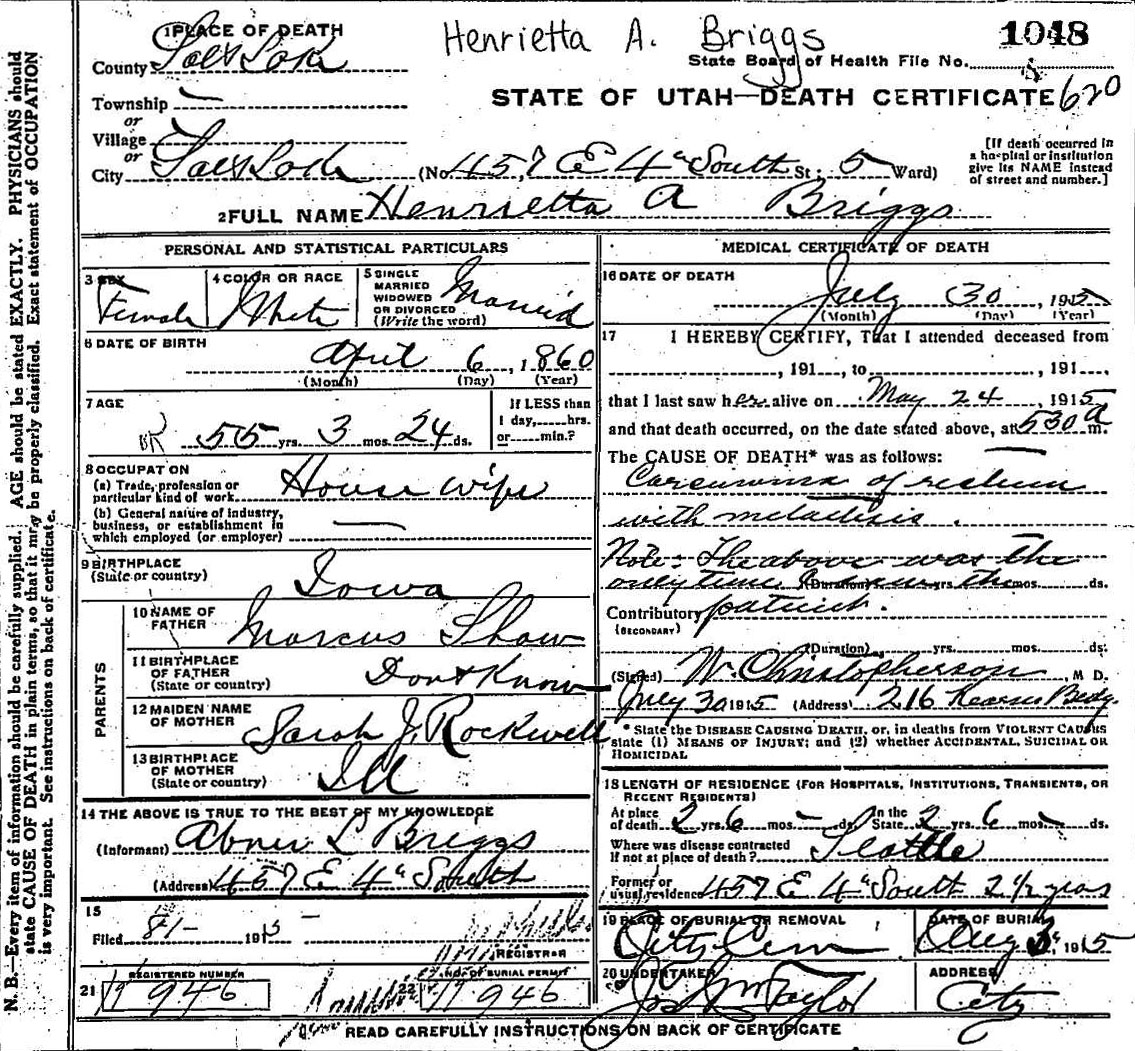 Henrietta A. Briggs
1048
1 PLACE OF DEATH
State Board of Health File No.
County Salt Lake
STATE OF UTAH—DEATH CERTIFICATE 620
Township —
or
Village
or
City Salt Lake (No. 457 E 4th South St; 5 Ward)
[If death occurred in a hospital or institution give its NAME instead of street and number.]
2 FULL NAME Henrietta A Briggs
PERSONAL AND STATISTICAL PARTICULARS
3 SEX
Female
4 COLOR OR RACE
White
5 SINGLE
MARRIED
WIDOWED
OR DIVORCED
(Write the word)
Married
6 DATE OF BIRTH
April 6, 1860
(Month) (Day) (Year)
7 AGE
55 yrs. 3 mos. 24 ds.
If LESS than
1 day,......hrs.
or......min.?
8 OCCUPATION
(a) Trade, profession or
particular kind of work
House wife
(b) General nature of industry,
business, or establishment in
which employed (or employer)
—
9 BIRTHPLACE
(State or country)
Iowa
PARENTS
10 NAME OF
FATHER
Marcus Shaw
11 BIRTHPLACE
OF FATHER
(State or country)
Dont Know
12 MAIDEN NAME
OF MOTHER
Sarah J. Rockwell
13 BIRTHPLACE
OF MOTHER
(State or country)
Ill
14 THE ABOVE IS TRUE TO THE BEST OF MY KNOWLEDGE
(Informant) Abner L Briggs
(Address) 457 E 4th South
15
Filed 8/1- 1915
REGISTRAR
REGISTERED NUMBER
21 946
22 NO. OF BURIAL PERMIT
946
MEDICAL CERTIFICATE OF DEATH
16 DATE OF DEATH
July 30, 1915
(Month) (Day) (Year)
17 I HEREBY CERTIFY, That I attended deceased from
, 191 , to , 191 ,
that I last saw her alive on May 24, 1915
and that death occurred, on the date stated above, at 530 a m.
The CAUSE OF DEATH* was as follows:
Carcinoma of rectum
with metastisis.
Note:- The above was the
only time I saw the
(Duration) yrs. mos. ds.
Contributory patient.
(SECONDARY)
(Duration) yrs. mos. ds.
(Signed) W. Christopherson, M D.
July 30 1915 (Address) 216 Kearns Bldg.
* State the DISEASE CAUSING DEATH, or, in deaths from VIOLENT CAUSES
state (1) MEANS OF INJURY; and (2) whether ACCIDENTAL, SUICIDAL OR
HOMICIDAL
18 LENGTH OF RESIDENCE (FOR HOSPITALS, INSTITUTIONS, TRANSIENTS, OR
RECENT RESIDENTS)
At place
of death 2 yrs. 6 mos. - ds.
In the
State 2 yrs. 6 mos. - ds.
Where was disease contracted
if not at place of death?
Seattle
Former or
usual residence 457 E 4th South 2 1/2 years
19 PLACE OF BURIAL OR REMOVAL
City Cem
DATE OF BURIAL
Aug 1915
20 UNDERTAKER
Jos Wm Taylor
ADDRESS
City
READ CAREFULLY INSTRUCTIONS ON BACK OF CERTIFICATE
N. B.—Every item of information should be carefully supplied. AGE should be stated EXACTLY. PHYSICIANS should
state CAUSE OF DEATH in plain terms, so that it may be properly classified. Exact statement of OCCUPATION
is very important. See instructions on back of certificate.